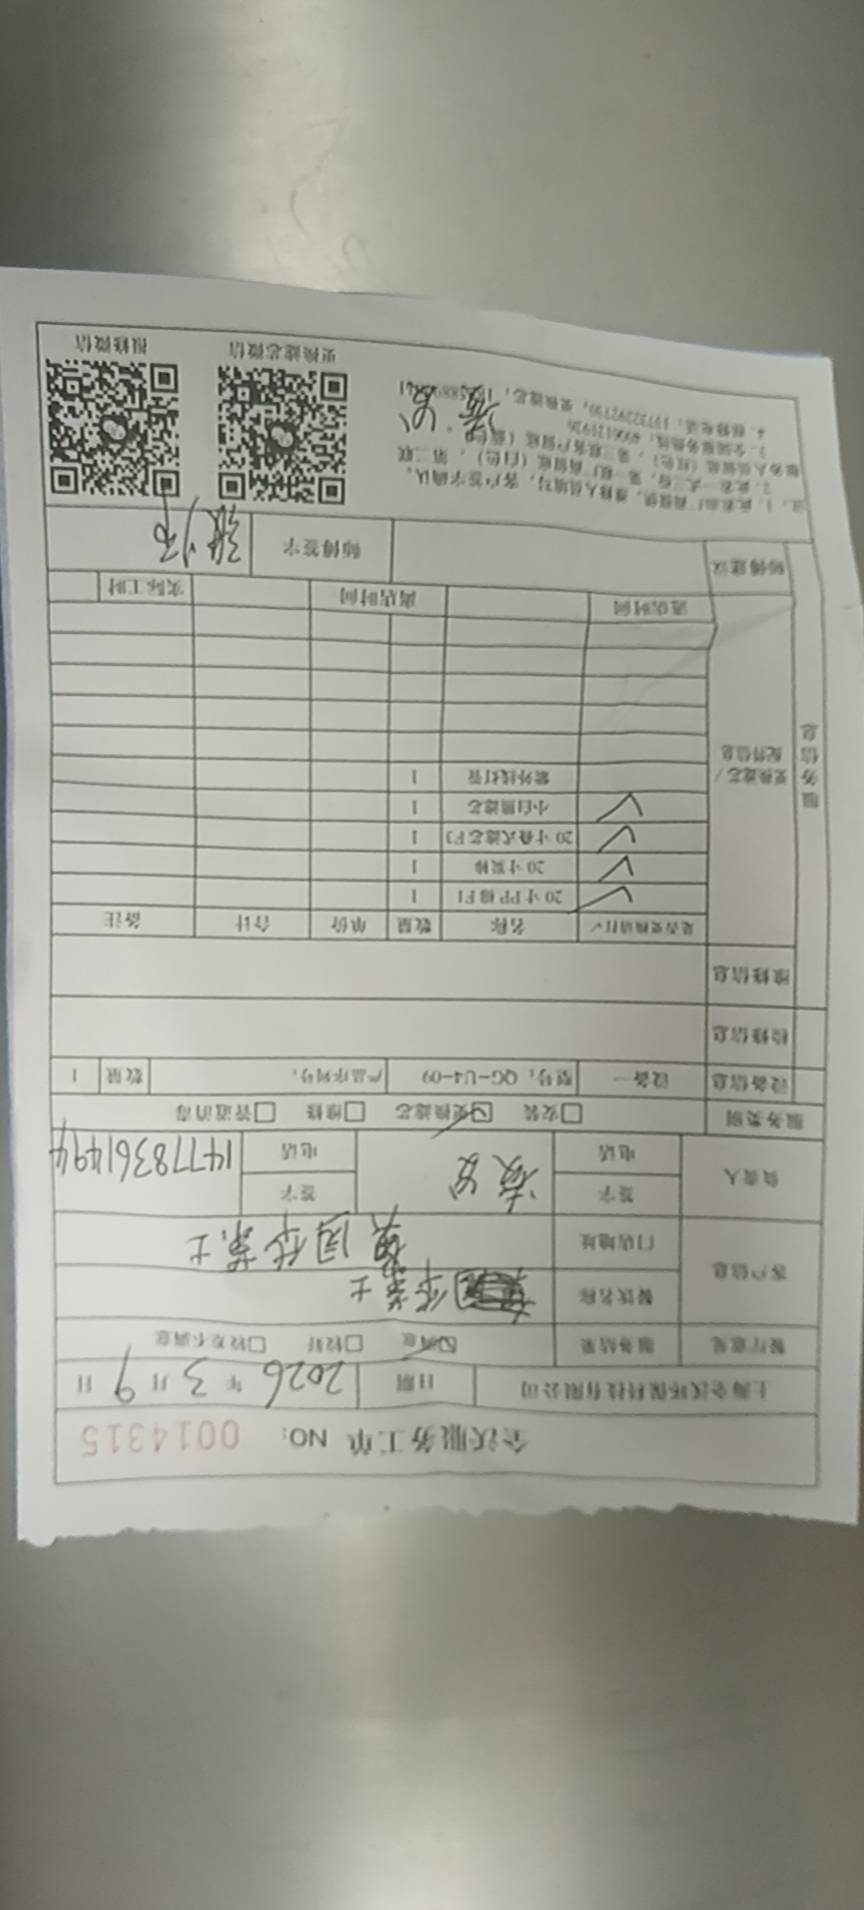 全沃服务工单 NO: 0014315
上海全沃环保科技有限公司 日期 2026 年 3 月 9 日
餐厅意见 服务结果 ☑满意 ☐较好 ☐较差不满意
客户信息 餐饮名称
门店地址
负责人 签字 签字
电话 电话 14778361494
服务类别 ☐安装 ☑更换滤芯 ☐维修 ☐管道消毒
设备信息 设备一 型号: QG-U4-09 产品序列号: 数量 1
检修信息
维修信息
服务信息
更换滤芯/配件信息
是否更换请打✓ 名称 数量 单价 合计 备注
✓ 20寸PP棉F1 1
✓ 20寸炭棒 1
✓ 20寸叠式滤芯F3 1
✓ 小白鹅滤芯 1
紫外线灯管 1
进店时间 离店时间 实际工时
师傅建议 师傅签字
注: 1. 此表由厂商提供, 维修人员填写, 客户签字确认。
2. 此表一式三份, 第一联厂商留底 (白色) , 第二联
服务人员留底 (红色) , 第三联客户留底
3. 全国服务热线: 4006121926
4. 报修电话: 更换滤芯:
更换滤芯微信 报修微信